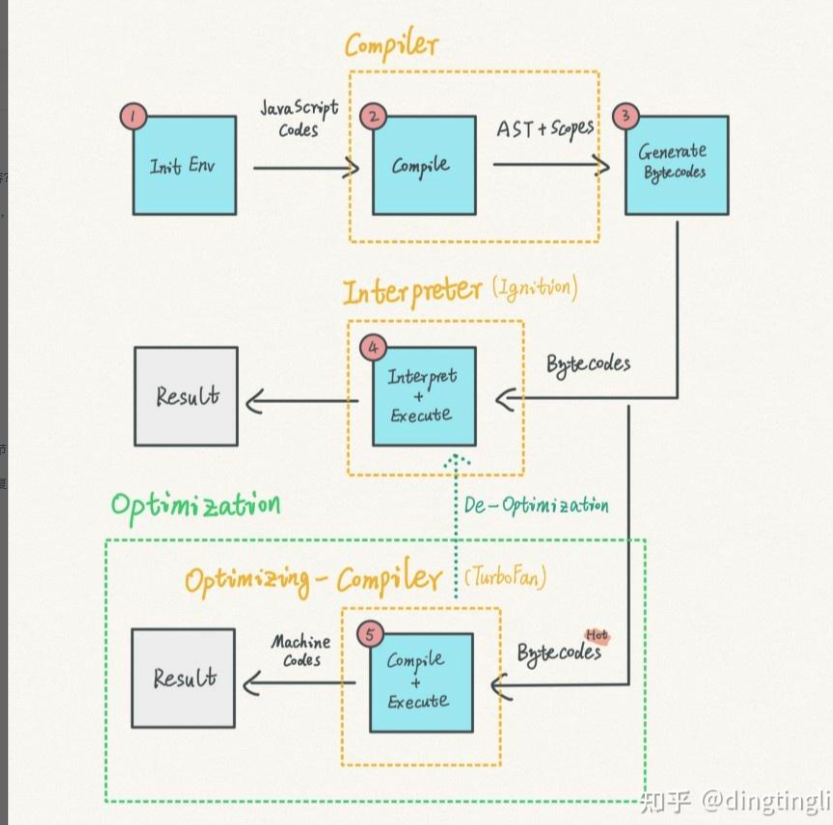 Compiler
1
Init Env
JavaScript
Codes
2
Compile
AST + Scopes
3
Generate
Bytecodes
Interpreter (Ignition)
Result
4
Interpret
+
Execute
Bytecodes
Optimization
De-Optimization
Optimizing-Compiler (TurboFan)
Result
Machine
Codes
5
Compile
+
Execute
Hot
Bytecodes
知乎 @dingtingli